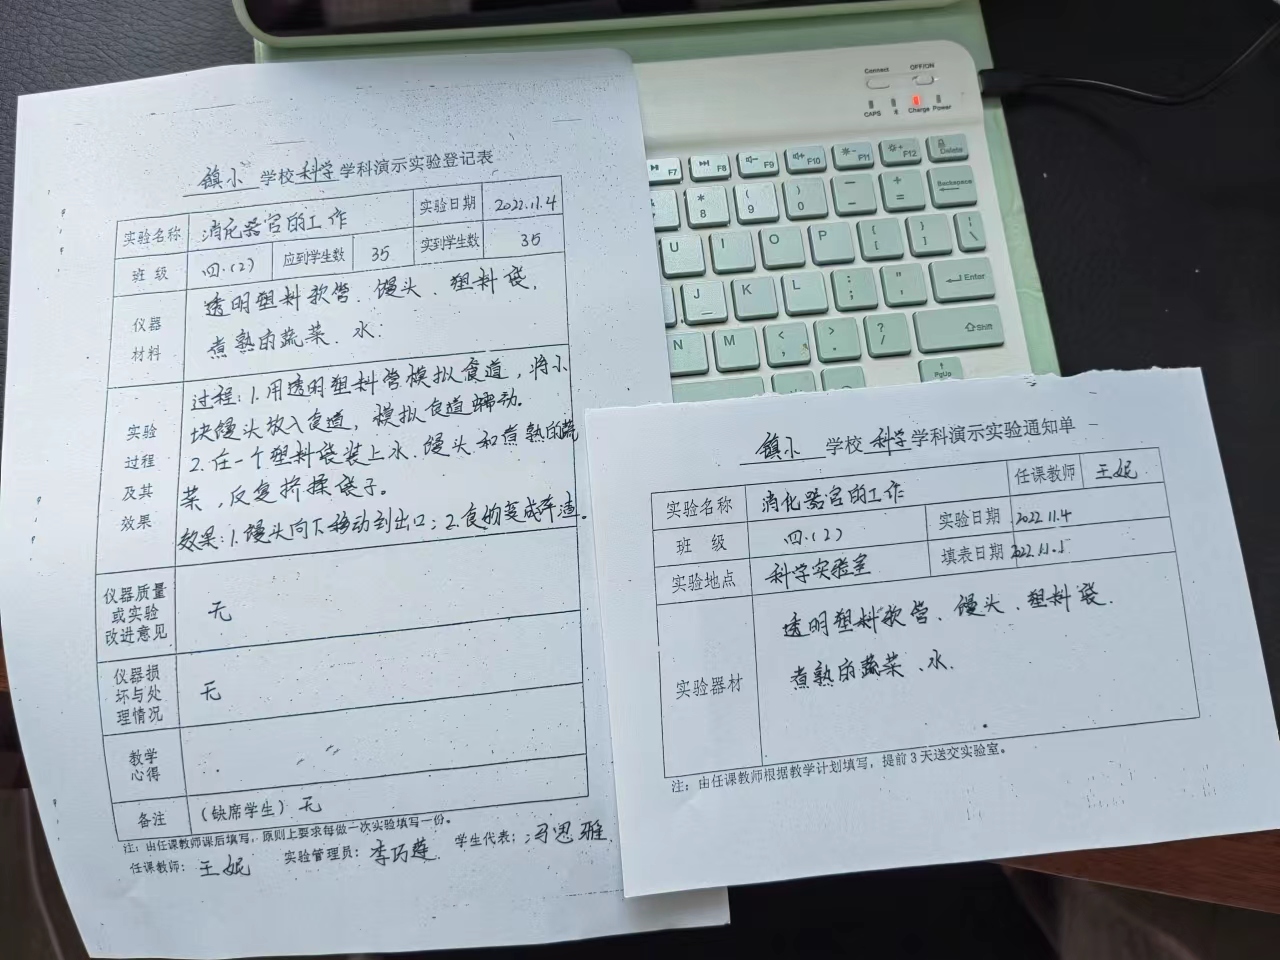 镇小 学校 科学 学科演示实验登记表
实验名称 消化器官的工作 实验日期 2022.11.4
班 级 四.(2) 应到学生数 35 实到学生数 35
仪器
材料
透明塑料软管、馒头、塑料袋、
煮熟的蔬菜、水.
实验
过程
及其
效果
过程:1.用透明塑料管模拟食道,将小
块馒头放入食道,模拟食道蠕动.
2.在一个塑料袋装上水、馒头和煮熟的蔬
菜,反复挤揉袋子。
效果:1.馒头向下移动到出口;2.食物变成碎渣。
仪器质量
或实验
改进意见
无
仪器损
坏与处
理情况
无
教学
心得
备注 (缺席学生)无
注:由任课教师课后填写,原则上要求每做一次实验填写一份。
任课教师:王妮 实验管理员:李巧莲 学生代表:冯思雅
镇小 学校 科学 学科演示实验通知单
实验名称 消化器官的工作 任课教师 王妮
班 级 四.(2) 实验日期 2022.11.4
实验地点 科学实验室 填表日期 2022.11.1
实验器材
透明塑料软管、馒头、塑料袋.
煮熟的蔬菜、水.
注:由任课教师根据教学计划填写,提前3天送交实验室。
Connect OFF/ON
CAPS Charge Power
F7 F8 F9 F10 F11 F12 Delete
* 8 ( 9 ) 0 _ - + = Backspace
U I O P { [ } ] | \
J K L : ; " ' Enter
N M < , > . ? / Shift
PgUp